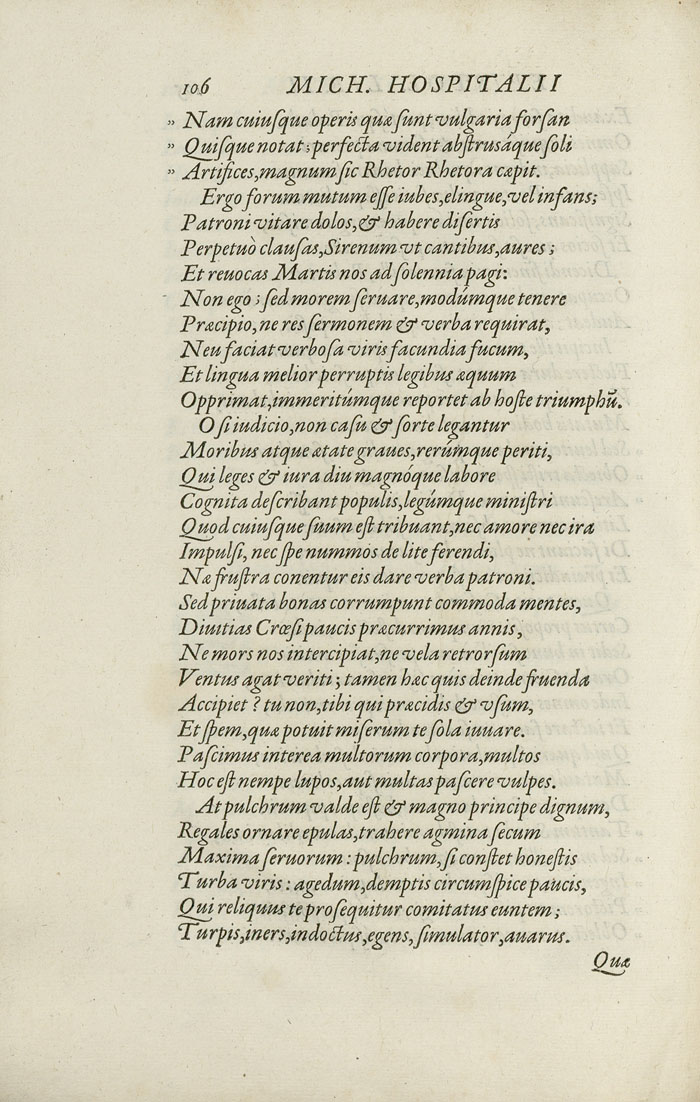 106 MICH. HOSPITALII
" Nam cuiuſque operis quæ ſunt vulgaria forſan
" Quiſque notat; perfecta vident abſtrusáque ſoli
" Artifices, magnum ſic Rhetor Rhetora cæpit.
Ergo forum mutum eſſe iubes, elingue, vel infans;
Patroni vitare dolos, & habere diſertis
Perpetuò clauſas, Sirenum vt cantibus, aures;
Et reuocas Martis nos ad ſolennia pagi:
Non ego; ſed morem ſeruare, modúmque tenere
Præcipio, ne res ſermonem & verba requirat,
Neu faciat verboſa viris facundia fucum,
Et lingua melior perruptis legibus æquum
Opprimat, immeritúmque reportet ab hoſte triumphū.
O ſi iudicio, non caſu & ſorte legantur
Moribus atque ætate graues, rerúmque periti,
Qui leges & iura diu magnóque labore
Cognita deſcribant populis, legúmque miniſtri
Quod cuiuſque ſuum eſt tribuant, nec amore nec ira
Impulſi, nec ſpe nummos de lite ferendi,
Næ fruſtra conentur eis dare verba patroni.
Sed priuata bonas corrumpunt commoda mentes,
Diuitias Crœſi paucis præcurrimus annis,
Ne mors nos intercipiat, ne vela retrorſum
Ventus agat veriti; tamen hæc quis deinde fruenda
Accipiet? tu non, tibi qui præcidis & vſum,
Et ſpem, quæ potuit miſerum te ſola iuuare.
Paſcimus interea multorum corpora, multos
Hoc eſt nempe lupos, aut multas paſcere vulpes.
At pulchrum valde eſt & magno principe dignum,
Regales ornare epulas, trahere agmina ſecum
Maxima ſeruorum: pulchrum, ſi conſtet honeſtis
Turba viris: agedum, demptis circumſpice paucis,
Qui reliquus te proſequitur comitatus euntem;
Turpis, iners, indoctus, egens, ſimulator, auarus.
Quæ